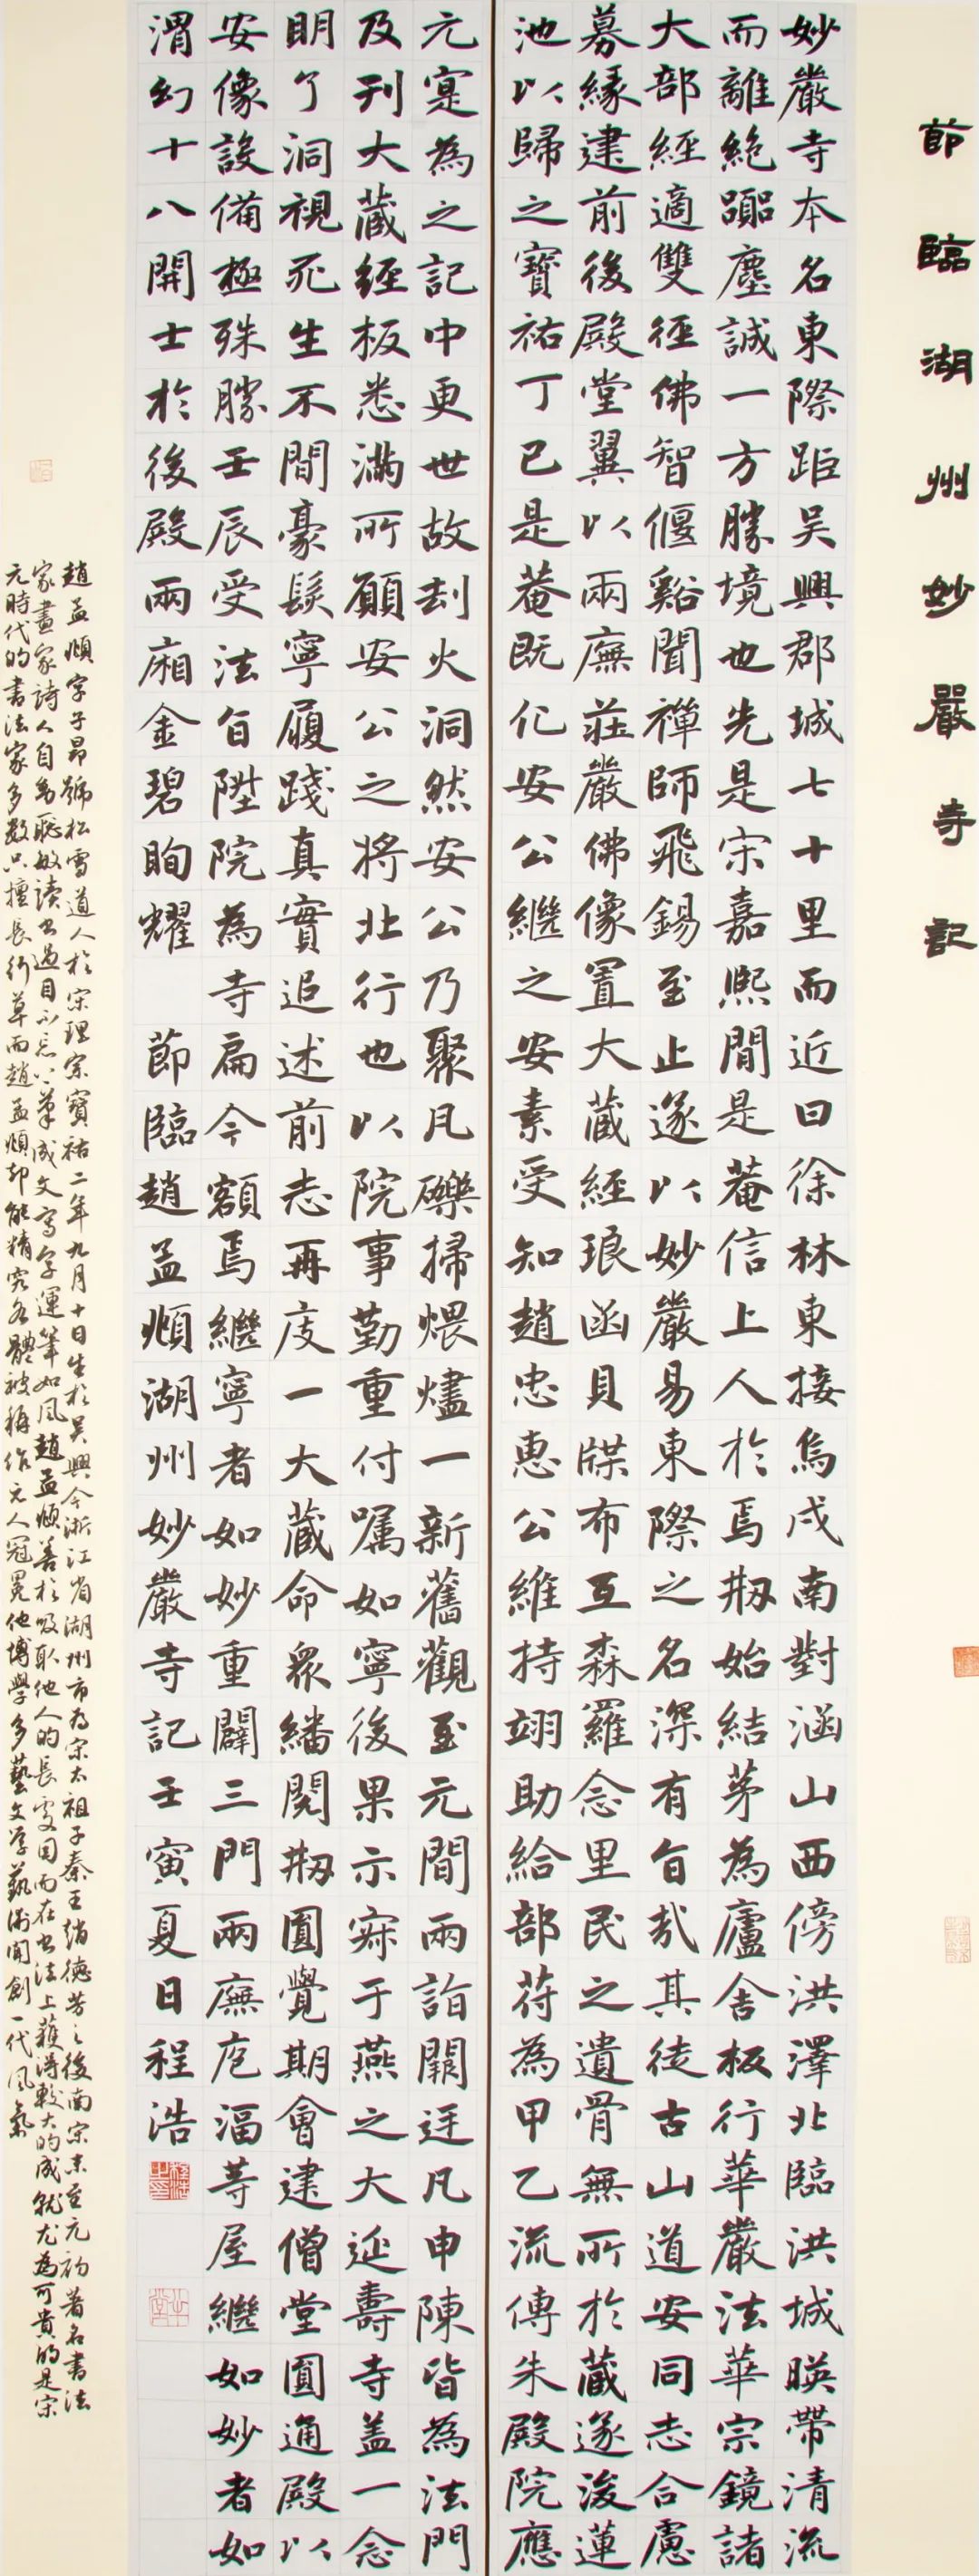 節臨湖州妙嚴寺記
妙嚴寺本名東際距吴興郡城七十里而近曰徐林東接烏戍南對涵山西傍洪澤北臨洪城暎帶清流
而離絶躁塵誠一方勝境也先是宋嘉熙間是菴信上人於焉剏始結茅為廬舍板行華嚴法華宗鏡諸
大部經適雙徑佛智偃谿聞禪師飛錫至止遂以妙嚴易東際之名深有旨哉其徒古山道安同志合慮
募緣建前後殿堂翼以兩廡莊嚴佛像置大藏經琅函貝牒布互森羅念里民之遺骨無所於藏遂浚蓮
池以歸之寶祐丁巳是菴既化安公繼之安素受知趙忠惠公維持翊助給部苻為甲乙流傳朱殿院應
元寔為之記中更世故刧火洞然安公乃聚凡礫掃煨燼一新舊觀至元間兩詣闕廷凡申陳皆為法門
及刊大藏經板悉滿所願安公之將北行也以院事勤重付囑如寧後果示寂于燕之大延壽寺盖一念
明了洞視死生不間豪髮寧履踐真實追述前志再度一大藏命衆繙閱剏圓覺期會建僧堂圓通殿以
安像設備極殊勝壬辰受法旨陞院為寺扁今額焉繼寧者如妙重闢三門兩廡庖湢等屋繼如妙者如
渭幻十八開士於後殿兩廂金碧眴耀
節臨趙孟頫湖州妙嚴寺記壬寅夏日程浩
趙孟頫字子昂號松雪道人於宋理宗寶祐二年九月十日生於吴興今浙江省湖州市為宋太祖子秦王趙德芳之後南宋末至元初著名書法
家畫家詩人自幼聰敏讀書過目不忘下筆成文寫字運筆如風趙孟頫善於吸取他人的長處因而在書法上獲得較大的成就尤為可貴的是宋
元時代的書法家多數只擅長行草而趙孟頫却能精究各體被稱作元人冠冕他博學多藝文學藝術開創一代風氣